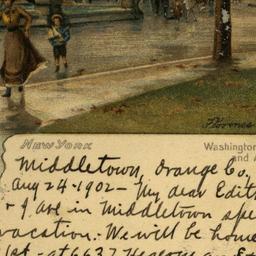 Florence
New York
Washington
and A
Middletown, Orange Co.,
Aug 24-1902 - My dear Edith
+ I are in Middletown spe
vacation. We will be home
1st - at 6637